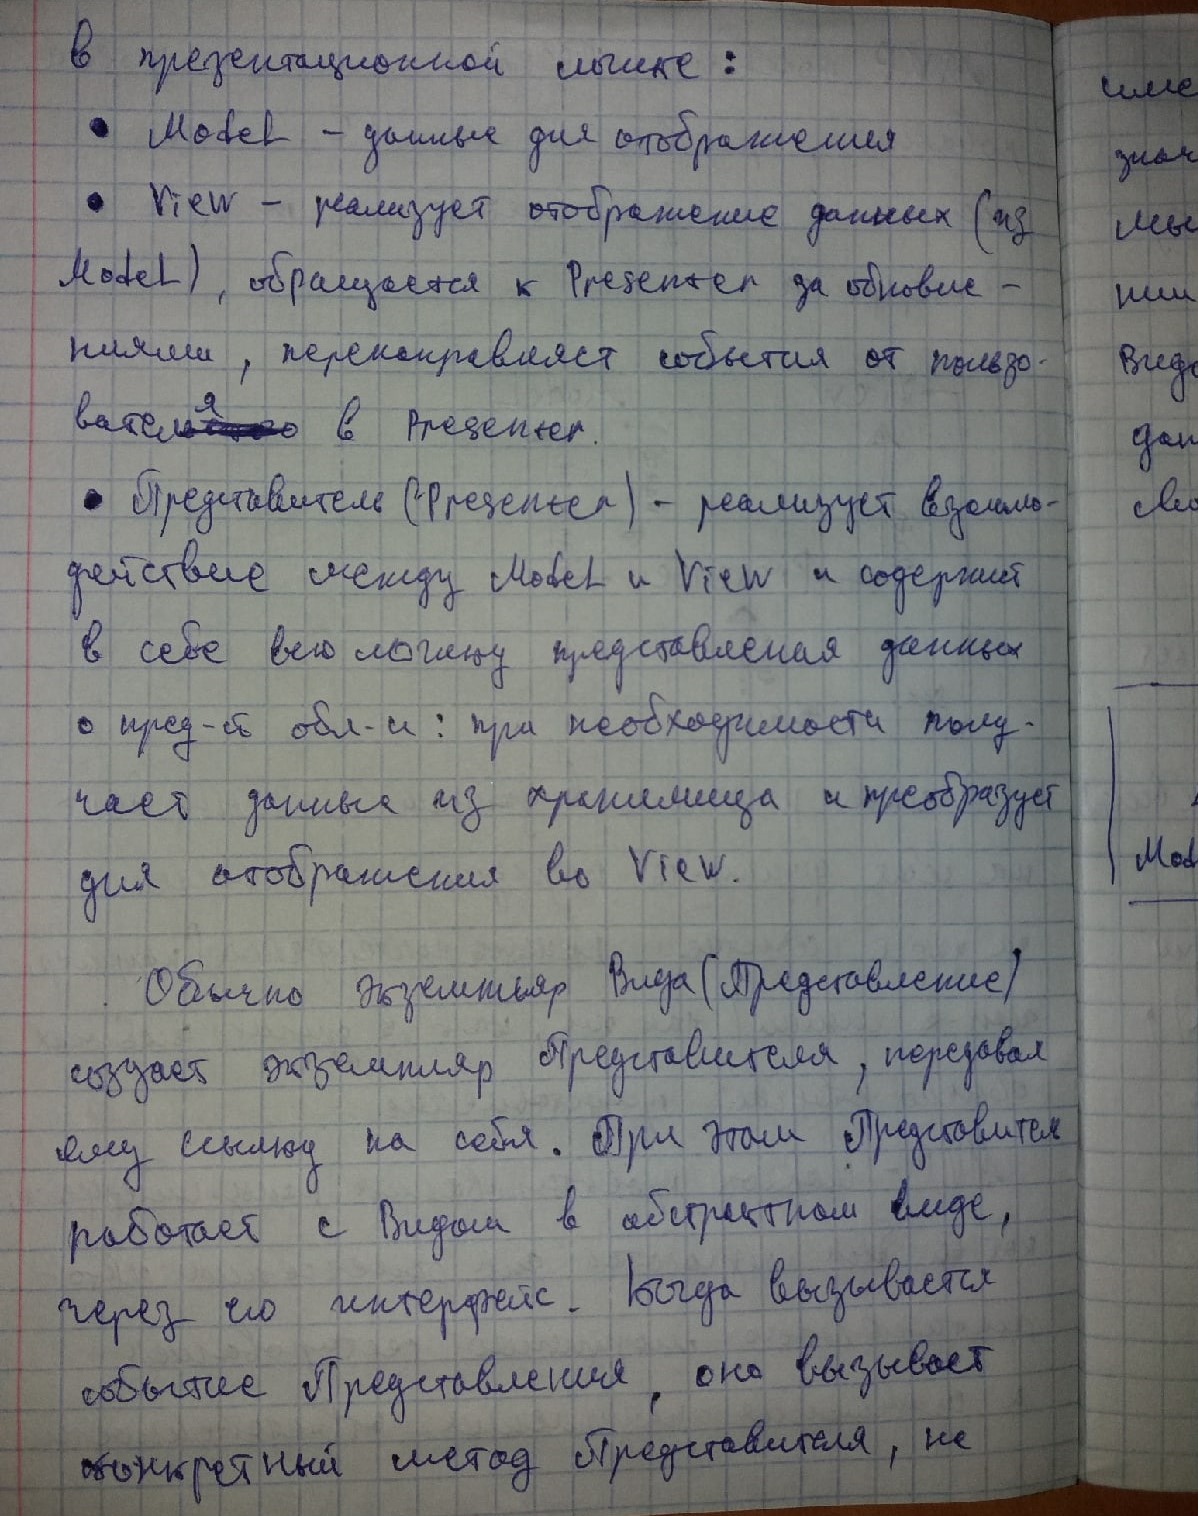 в презентационной логике:
• Model – данные для отображения
• View – реализует отображение данных (из
Model), обращается к Presenter за обновле-
ниями, перенаправляет события от пользо-
вателя в Presenter.
• Представитель (Presenter) – реализует взаимо-
действие между Model и View и содержит
в себе всю логику представления данных
о пред-й обл-и: при необходимости полу-
чает данные из хранилища и преобразует
для отображения во View.
Обычно экземпляр Вида (Представление)
создает экземпляр Представителя, передавая
ему ссылку на себя. При этом Представитель
работает с Видом в абстрактном виде,
через его интерфейс. Когда вызывается
событие Представления, оно вызывает
конкретный метод Представителя, не
знач
мы
нии
Вида
дан
Mod